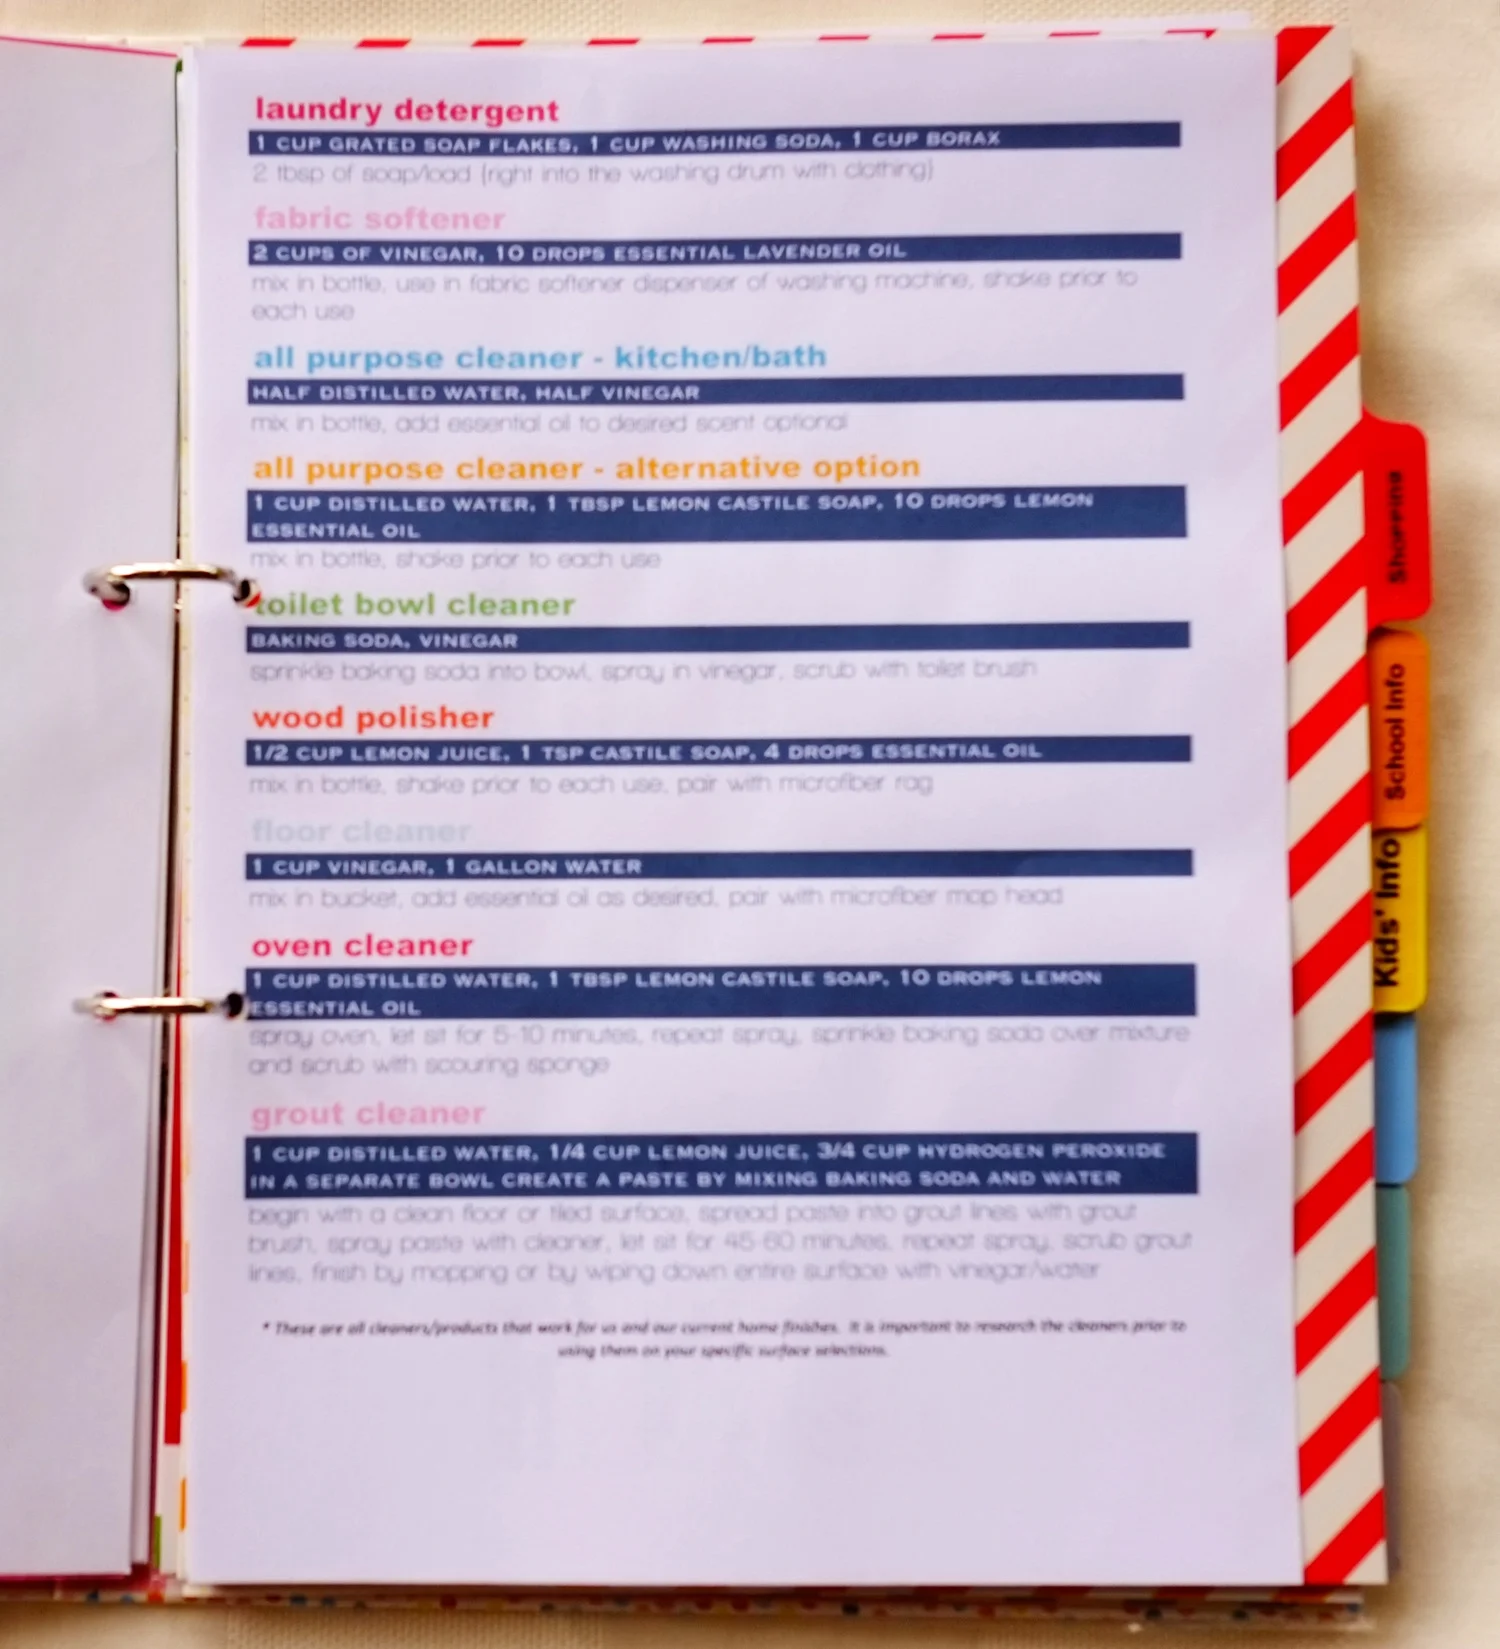 laundry detergent
1 CUP GRATED SOAP FLAKES, 1 CUP WASHING SODA, 1 CUP BORAX
2 tbsp of soap/load (right into the washing drum with clothing)
fabric softener
2 CUPS OF VINEGAR, 10 DROPS ESSENTIAL LAVENDER OIL
mix in bottle, use in fabric softener dispenser of washing machine, shake prior to
each use
all purpose cleaner - kitchen/bath
HALF DISTILLED WATER, HALF VINEGAR
mix in bottle, add essential oil to desired scent optional
all purpose cleaner - alternative option
1 CUP DISTILLED WATER, 1 TBSP LEMON CASTILE SOAP, 10 DROPS LEMON
ESSENTIAL OIL
mix in bottle, shake prior to each use
toilet bowl cleaner
BAKING SODA, VINEGAR
sprinkle baking soda into bowl, spray in vinegar, scrub with toilet brush
wood polisher
1/2 CUP LEMON JUICE, 1 TSP CASTILE SOAP, 4 DROPS ESSENTIAL OIL
mix in bottle, shake prior to each use, pair with microfiber rag
floor cleaner
1 CUP VINEGAR, 1 GALLON WATER
mix in bucket, add essential oil as desired, pair with microfiber mop head
oven cleaner
1 CUP DISTILLED WATER, 1 TBSP LEMON CASTILE SOAP, 10 DROPS LEMON
ESSENTIAL OIL
spray oven, let sit for 5-10 minutes, repeat spray, sprinkle baking soda over mixture
and scrub with scouring sponge
grout cleaner
1 CUP DISTILLED WATER, 1/4 CUP LEMON JUICE, 3/4 CUP HYDROGEN PEROXIDE
IN A SEPARATE BOWL CREATE A PASTE BY MIXING BAKING SODA AND WATER
begin with a clean floor or tiled surface, spread paste into grout lines with grout
brush, spray paste with cleaner, let sit for 45-60 minutes, repeat spray, scrub grout
lines, finish by mopping or by wiping down entire surface with vinegar/water
* These are all cleaners/products that work for us and our current home finishes. It is important to research the cleaners prior to
using them on your specific surface selections.
Shopping
School Info
Kids' Info